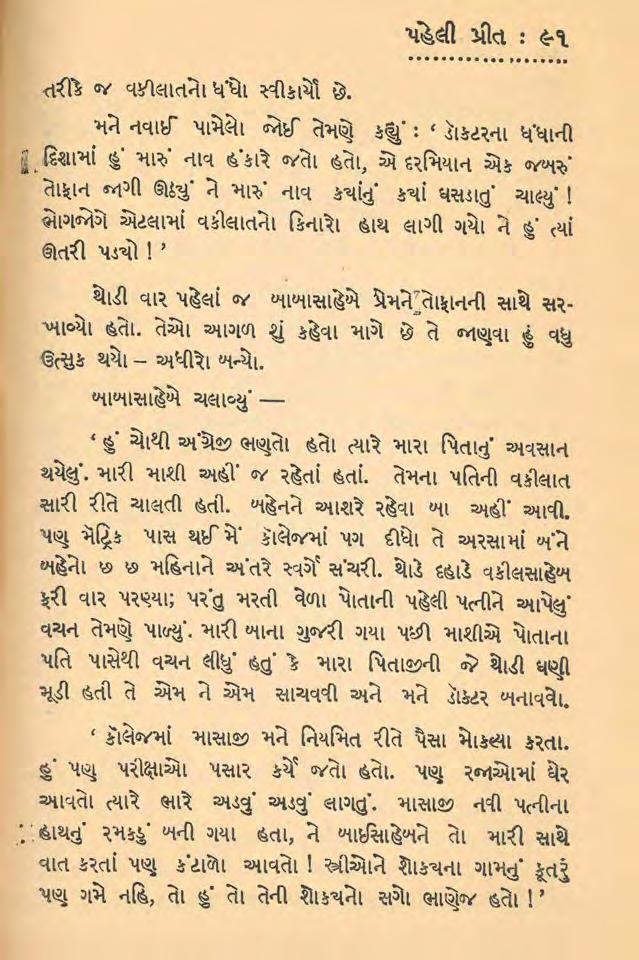 પહેલી પ્રીત : ૯૧
તરીકે જ વકીલાતનો ધંધો સ્વીકાર્યો છે.
મને નવાઈ પામેલો જોઈ તેમણે કહ્યું : ‘ ડૉક્ટરના ધંધાની
દિશામાં હું મારું નાવ હંકારે જતો હતો, એ દરમિયાન એક જબરું
તોફાન જાગી ઊઠ્યું ને મારું નાવ ક્યાંનું ક્યાં ઘસડાતું ચાલ્યું !
ભોગજોગે એટલામાં વકીલાતનો કિનારો હાથ લાગી ગયો ને હું ત્યાં
ઊતરી પડ્યો ! ’
થોડી વાર પહેલાં જ બાબાસાહેબે પ્રેમને તોફાનની સાથે સર-
ખાવ્યો હતો. તેઓ આગળ શું કહેવા માગે છે તે જાણવા હું વધુ
ઉત્સુક થયો – અધીરો બન્યો.
બાબાસાહેબે ચલાવ્યું —
‘ હું ચોથી અંગ્રેજી ભણતો હતો ત્યારે મારા પિતાનું અવસાન
થયેલું. મારી માશી અહીં જ રહેતાં હતાં. તેમના પતિની વકીલાત
સારી રીતે ચાલતી હતી. બહેનને આશરે રહેવા બા અહીં આવી.
પણ મૅટ્રિક પાસ થઈ મેં કૉલેજમાં પગ દીધો તે અરસામાં બંને
બહેનો છ છ મહિનાને અંતરે સ્વર્ગે સંચરી. થોડે દહાડે વકીલસાહેબ
ફરી વાર પરણ્યા; પરંતુ મરતી વેળા પોતાની પહેલી પત્નીને આપેલું
વચન તેમણે પાળ્યું. મારી બાના ગુજરી ગયા પછી માશીએ પોતાના
પતિ પાસેથી વચન લીધું હતું કે મારા પિતાજીની જે થોડી ઘણી
મૂડી હતી તે એમ ને એમ સાચવવી અને મને ડૉક્ટર બનાવવો.
‘ કૉલેજમાં માસાજી મને નિયમિત રીતે પૈસા મોકલ્યા કરતા.
હું પણ પરીક્ષાઓ પસાર કર્યે જતો હતો. પણ રજાઓમાં ઘેર
આવતો ત્યારે ભારે અડવું અડવું લાગતું. માસાજી નવી પત્નીના
હાથનું રમકડું બની ગયા હતા, ને બાઈસાહેબને તો મારી સાથે
વાત કરતાં પણ કંટાળો આવતો ! સ્ત્રીઓને શોક્યના ગામનું કૂતરું
પણ ગમે નહિ, તો હું તો તેની શોક્યનો સગો ભાણેજ હતો ! ’